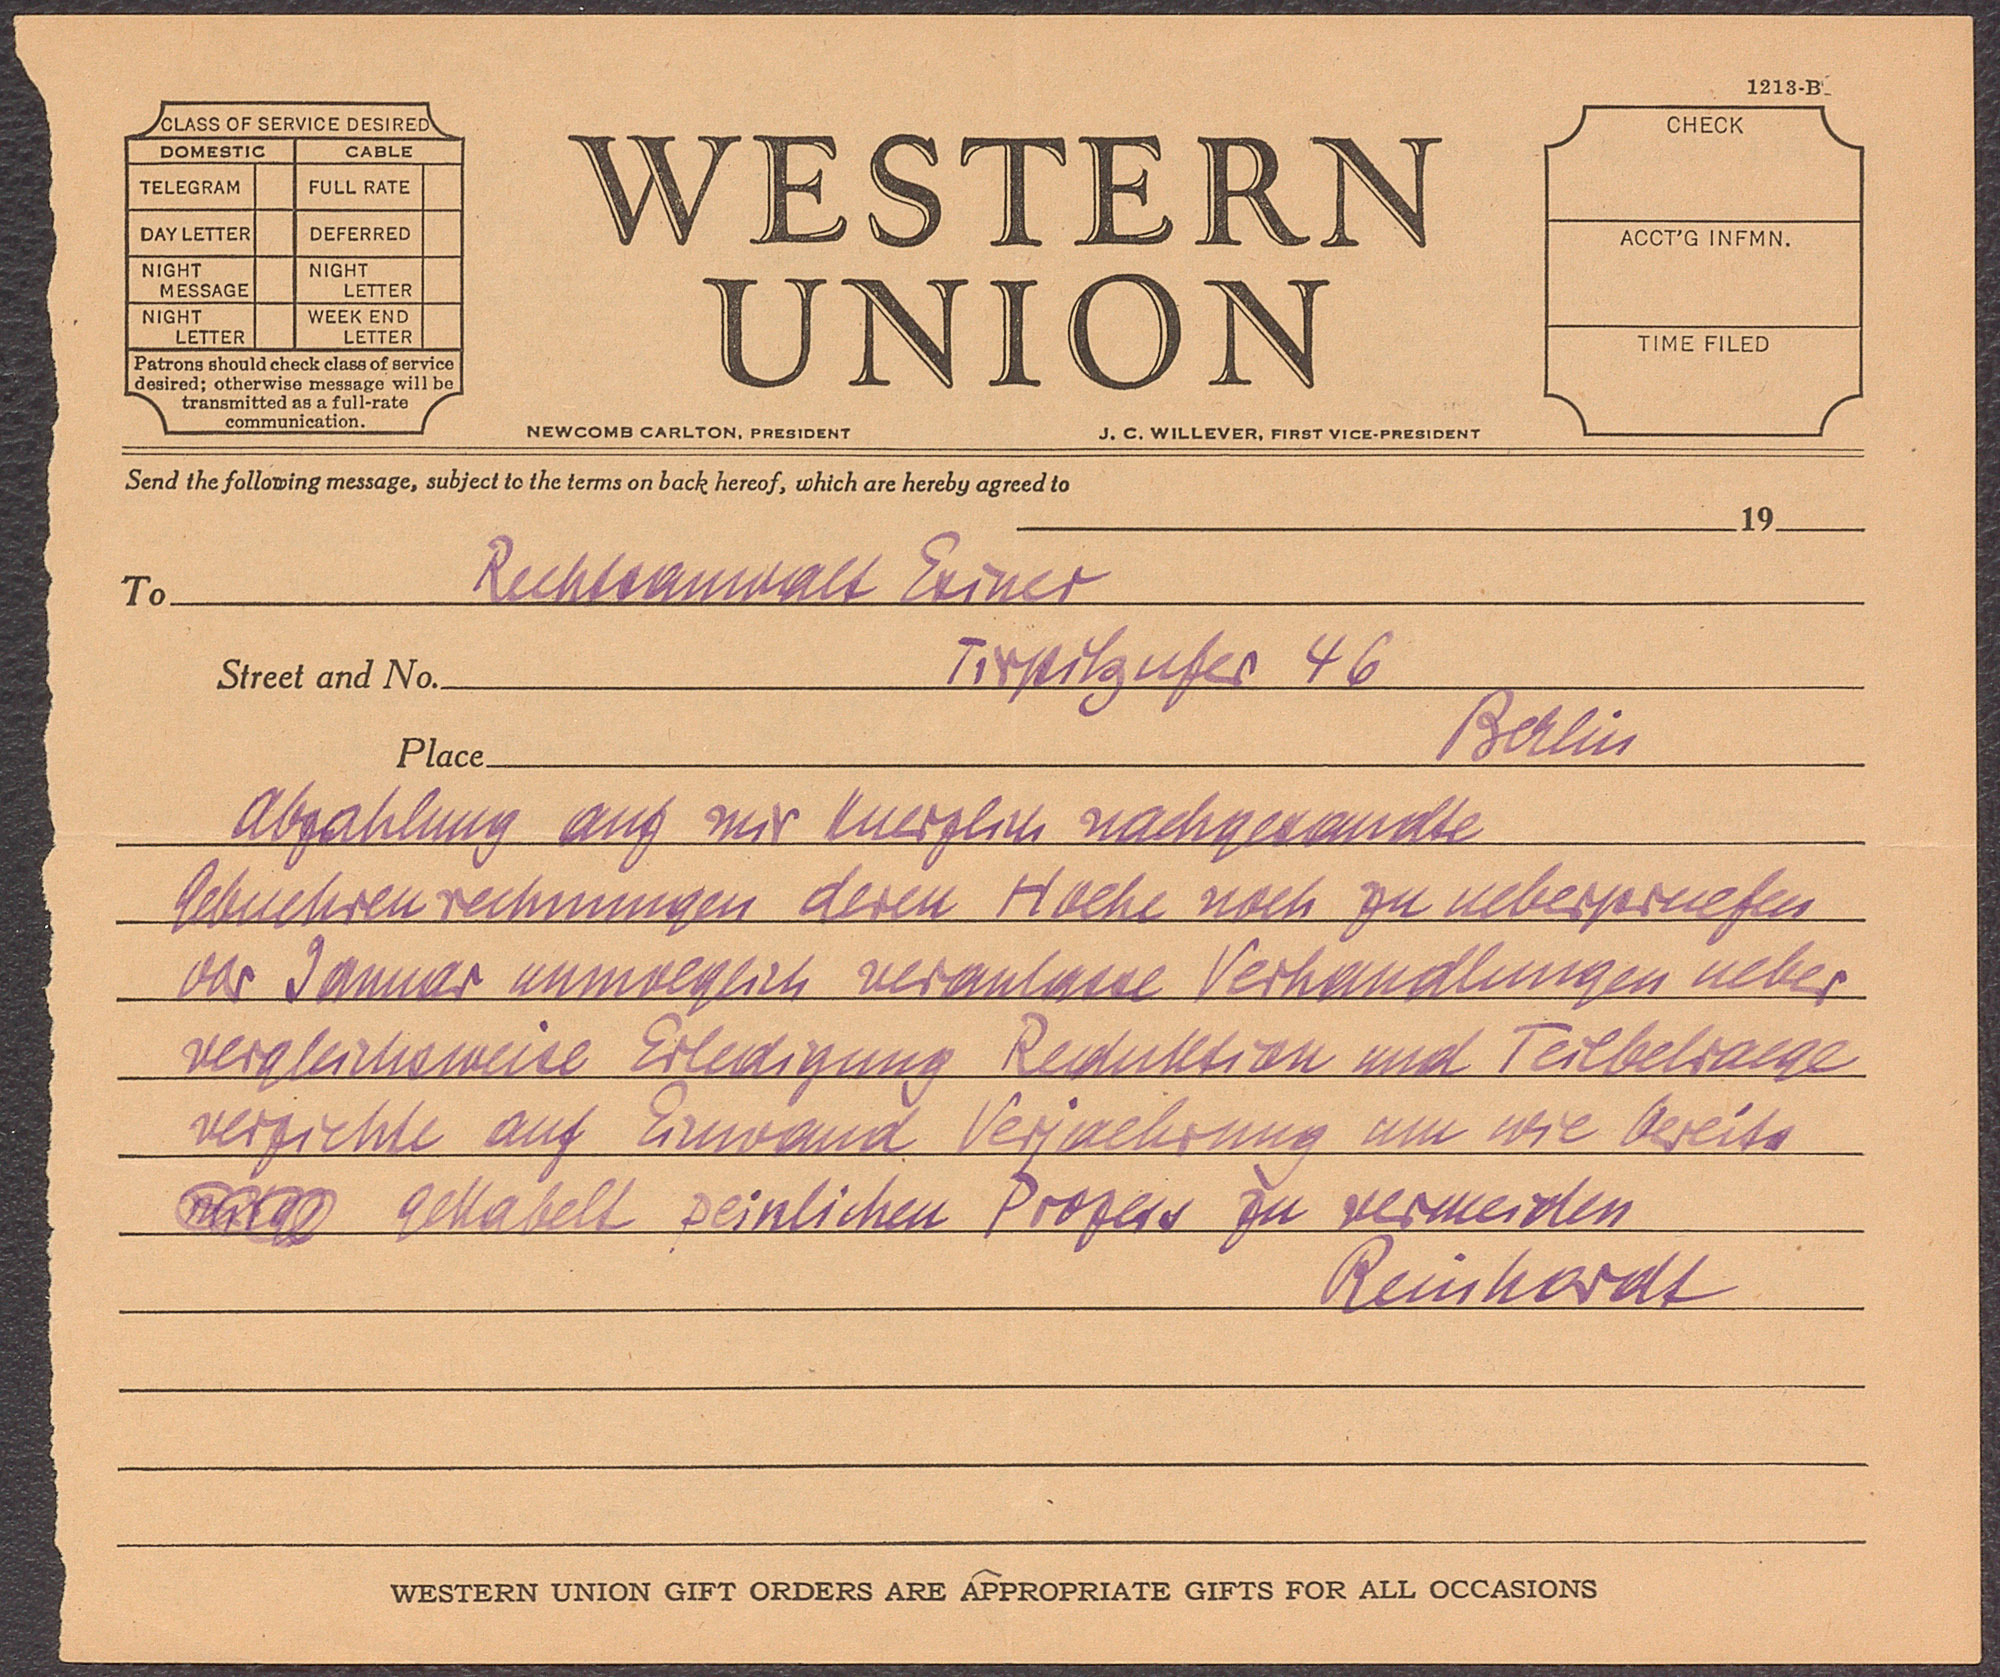 1213-B
CLASS OF SERVICE DESIRED
DOMESTIC CABLE
TELEGRAM FULL RATE
DAY LETTER DEFERRED
NIGHT MESSAGE NIGHT LETTER
NIGHT LETTER WEEK END LETTER
Patrons should check class of service
desired; otherwise message will be
transmitted as a full-rate
communication.
WESTERN
UNION
NEWCOMB CARLTON, PRESIDENT J. C. WILLEVER, FIRST VICE-PRESIDENT
CHECK
ACCT'G INFMN.
TIME FILED
Send the following message, subject to the terms on back hereof, which are hereby agreed to
19
To Rechtsanwalt Exiner
Street and No. Tirpitzufer 46
Place Berlin
Abzahlung auf mir kuerzlich nachgesandte
Gebuehrenrechnungen deren Hoehe noch zu ueberpruefen
vor Januar unmoeglich veranlasse Verhandlungen ueber
vergleichsweise Erledigung Reduktion und Teilbetraege
verzichte auf Einwand Verjaehrung um wie bereits
gekabelt peinlichen Prozess zu vermeiden
Reinhardt
WESTERN UNION GIFT ORDERS ARE APPROPRIATE GIFTS FOR ALL OCCASIONS